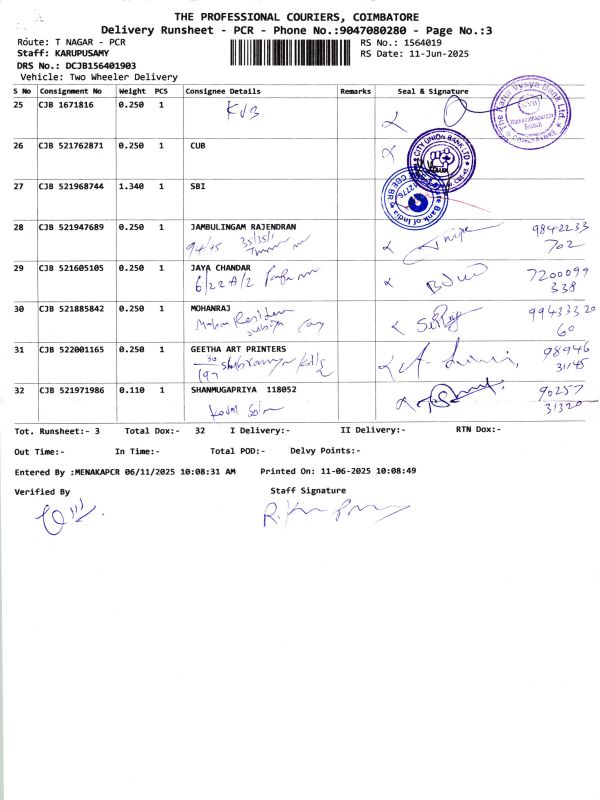 THE PROFESSIONAL COURIERS, COIMBATORE
Delivery Runsheet - PCR - Phone No.:9047080280 - Page No.:3
Route: T NAGAR - PCR RS No.: 1564019
Staff: KARUPUSAMY RS Date: 11-Jun-2025
DRS No.: DCJB156401903
Vehicle: Two Wheeler Delivery
S No Consignment No Weight PCS Consignee Details Remarks Seal & Signature
25 CJB 1671816 0.250 1 KVB
26 CJB 521762871 0.250 1 CUB
CITY UNION BANK LTD
27 CJB 521968744 1.340 1 SBI
28 CJB 521947689 0.250 1 JAMBULINGAM RAJENDRAN 9842233
702
29 CJB 521605105 0.250 1 JAYA CHANDAR 7200099
6/22 A/2 338
30 CJB 521885842 0.250 1 MOHANRAJ 99433320
60
31 CJB 522001165 0.250 1 GEETHA ART PRINTERS 98946
31145
32 CJB 521971986 0.110 1 SHANMUGAPRIYA 118052 90257
31320
Tot. Runsheet:- 3 Total Dox:- 32 I Delivery:- II Delivery:- RTN Dox:-
Out Time:- In Time:- Total POD:- Delvy Points:-
Entered By :MENAKAPCR 06/11/2025 10:08:31 AM Printed On: 11-06-2025 10:08:49
Verified By Staff Signature